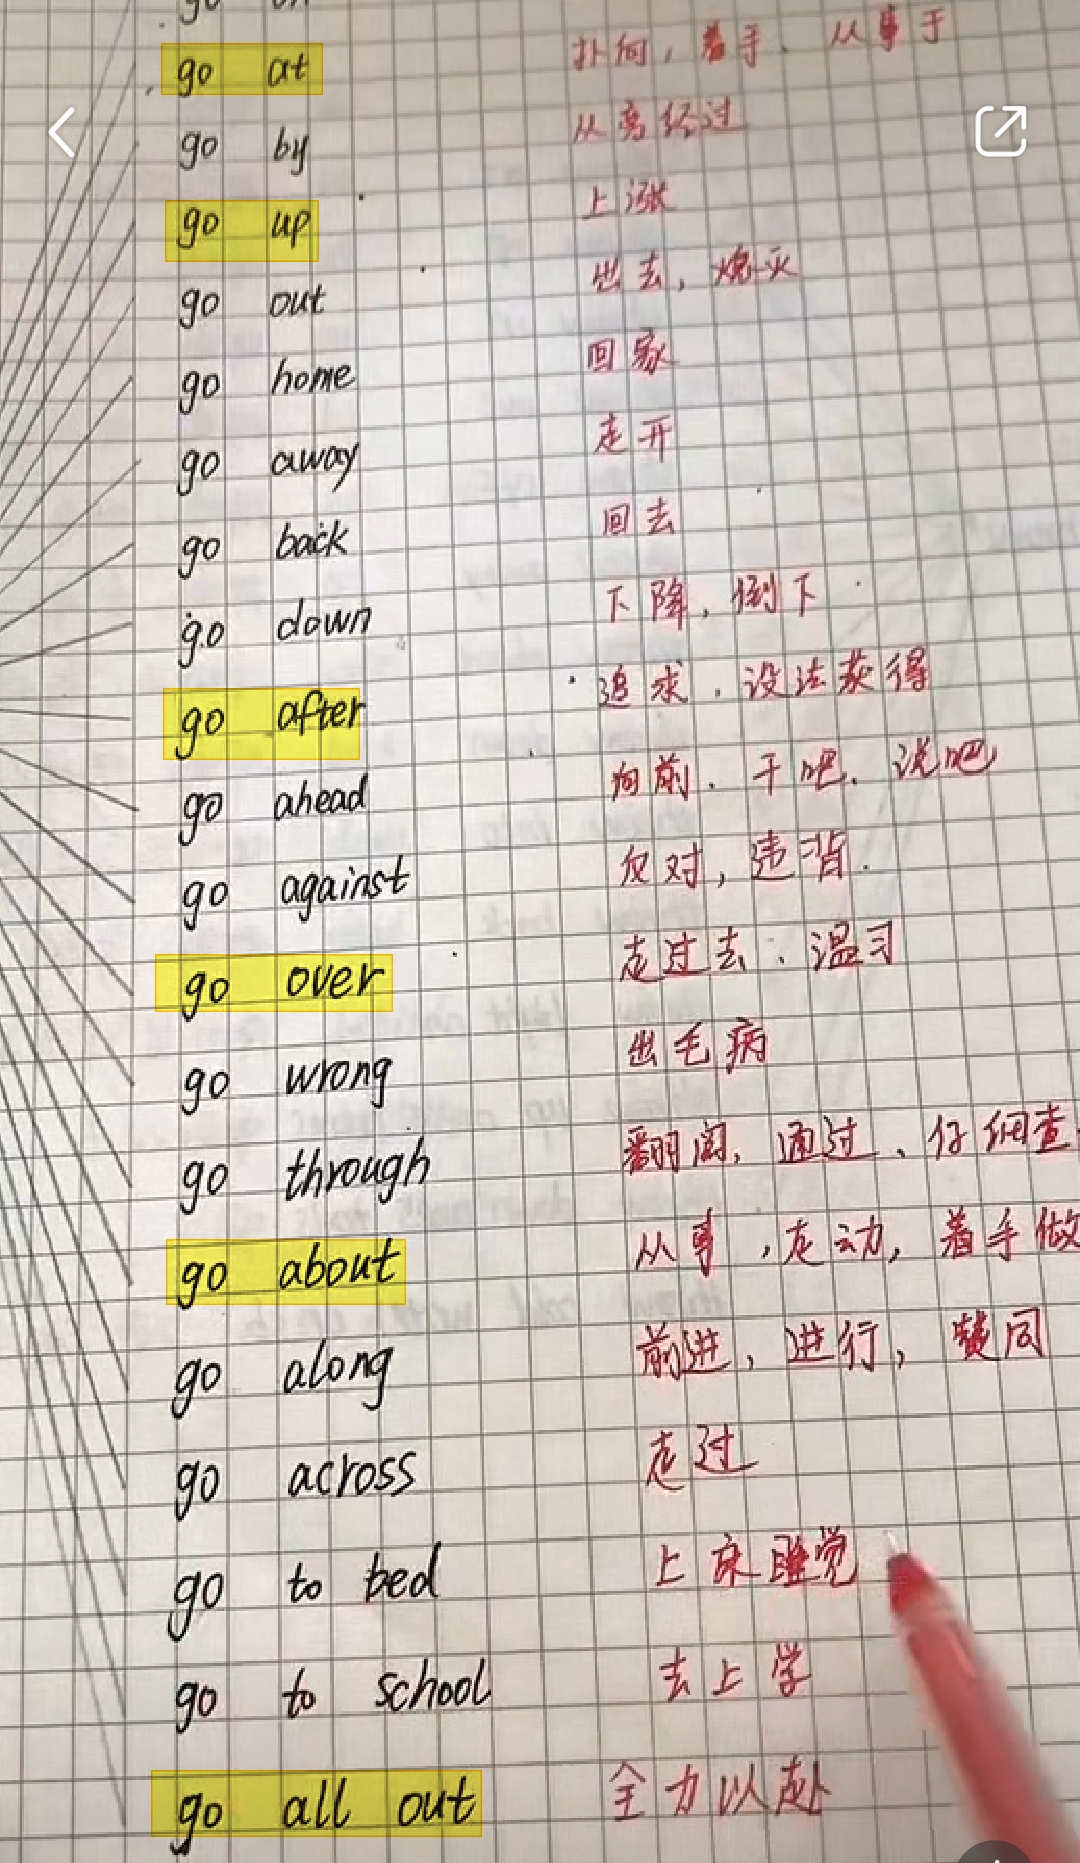 go at 扑向，着手、从事于
go by 从旁经过
go up 上涨
go out 出去，熄灭
go home 回家
go away 走开
go back 回去
go down 下降，倒下
go after 追求，设法获得
go ahead 向前、干吧、说吧
go against 反对，违背
go over 走过去、温习
go wrong 出毛病
go through 翻阅，通过、仔细查
go about 从事，走动，着手做
go along 前进，进行，赞同
go across 走过
go to bed 上床睡觉
go to school 去上学
go all out 全力以赴